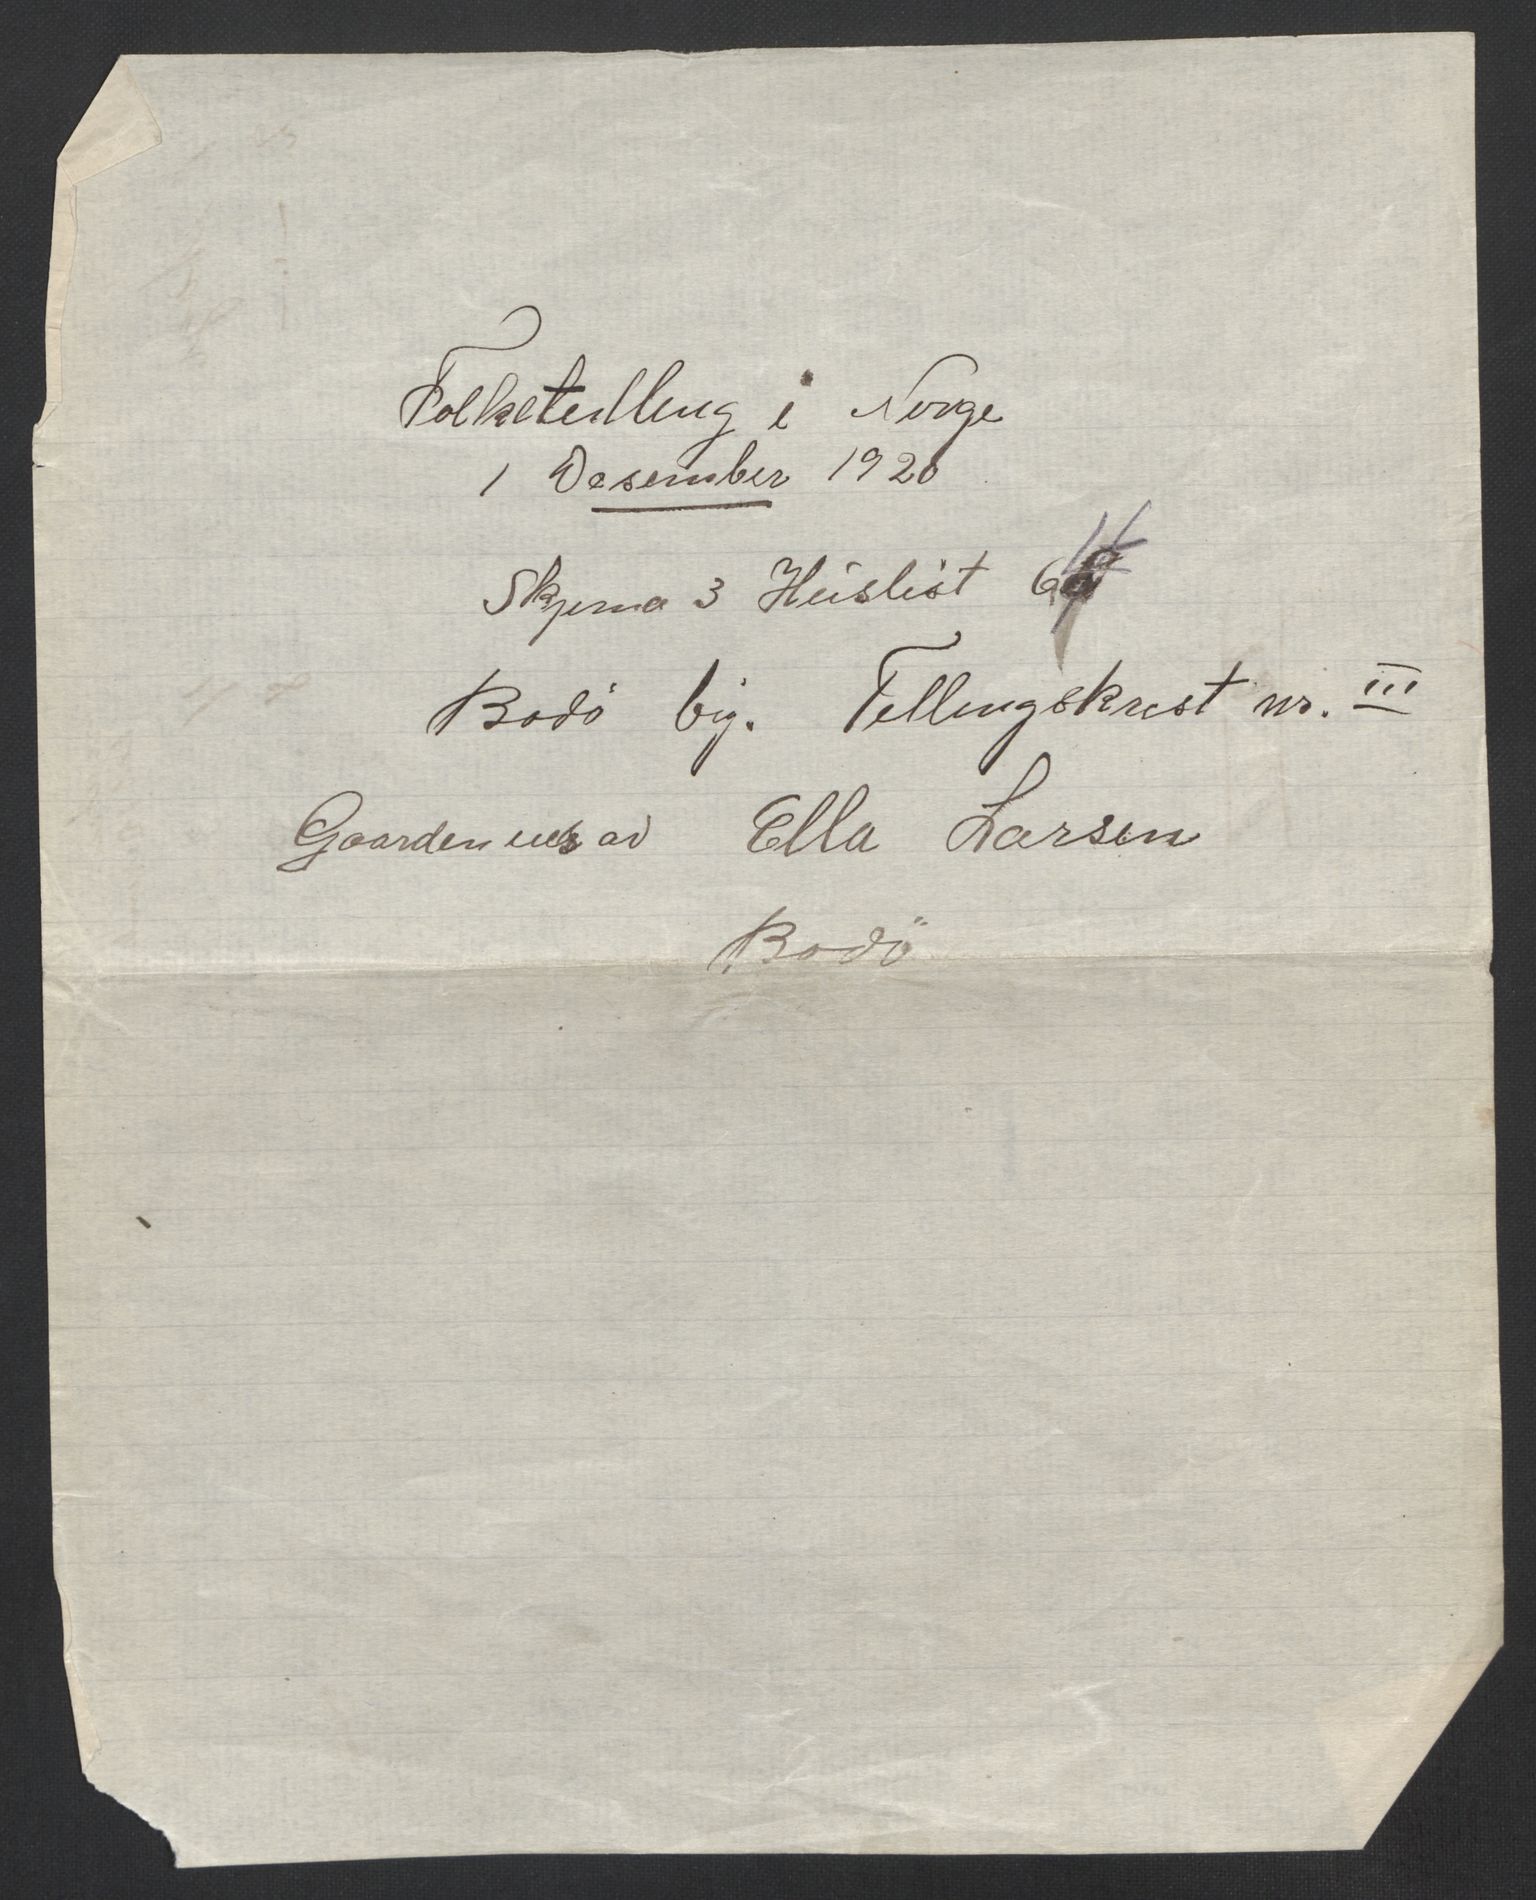 Folketelling i Norge
1 Desember 1920
Skjema 3 Huslist
Bodö by. Tellingskrest nr. III
Gaarden eies av Ella Larsen
Bodö